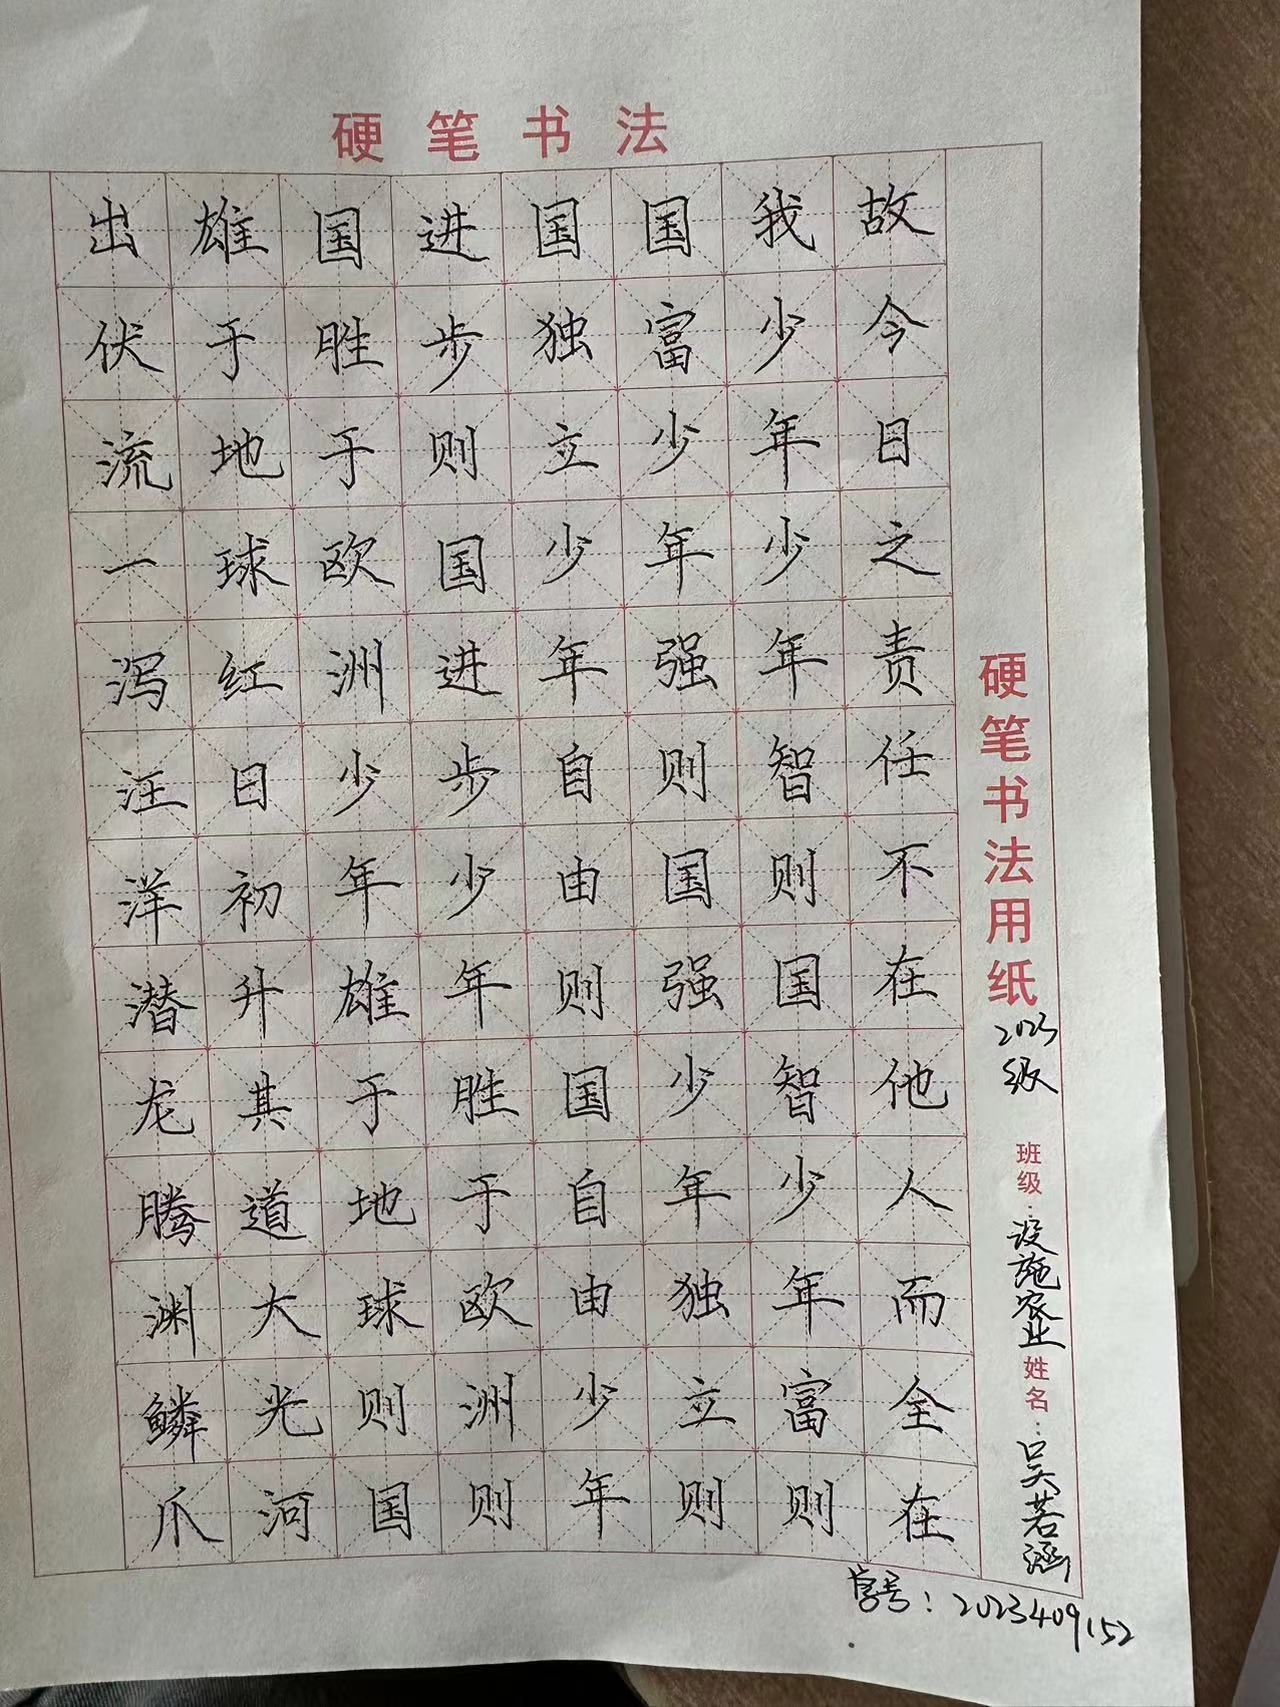 硬笔书法
故今日之责任不在他人而全在
我少年少年智则国智少年富则
国富少年强则国强少年独立则
国独立少年自由则国自由少年
进步则国进步少年胜于欧洲则
国胜于欧洲少年雄于地球则国
雄于地球红日初升其道大光河
出伏流一泻汪洋潜龙腾渊鳞爪
硬笔书法用纸
2023级
班级：设施农业
姓名：吴若涵
学号：2023409152